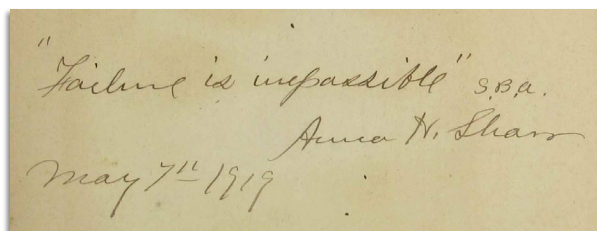 "Failure is impossible" S.B.A.
Anna H. Shaw
May 7th 1919